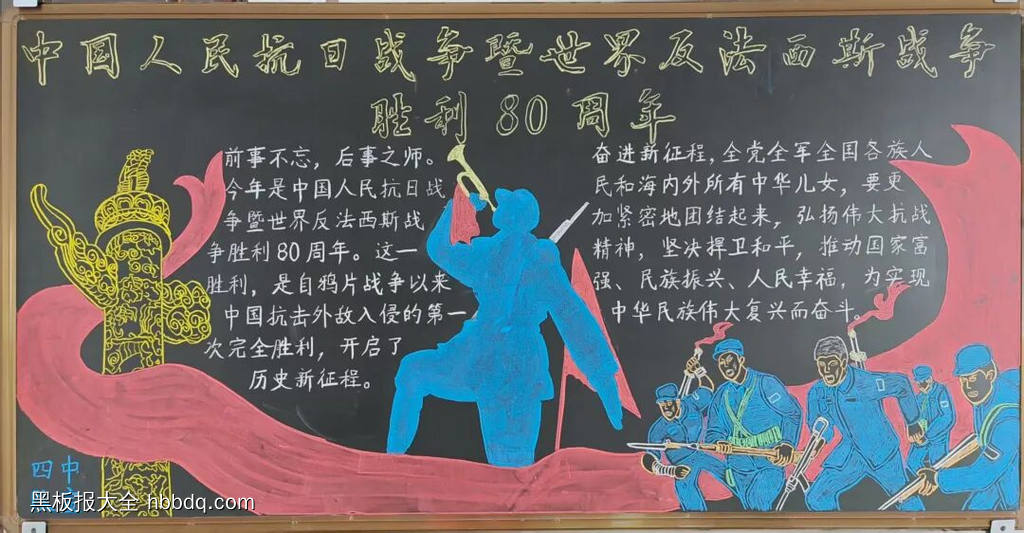 中国人民抗日战争暨世界反法西斯战争
胜利80周年
前事不忘，后事之师。
今年是中国人民抗日战
争暨世界反法西斯战
争胜利80周年。这一
胜利，是自鸦片战争以来
中国抗击外敌入侵的第一
次完全胜利，开启了
历史新征程。
奋进新征程，全党全军全国各族人
民和海内外所有中华儿女，要更
加紧密地团结起来，弘扬伟大抗战
精神，坚决捍卫和平，推动国家富
强、民族振兴、人民幸福，为实现
中华民族伟大复兴而奋斗。
四中
黑板报大全 hbbdq.com